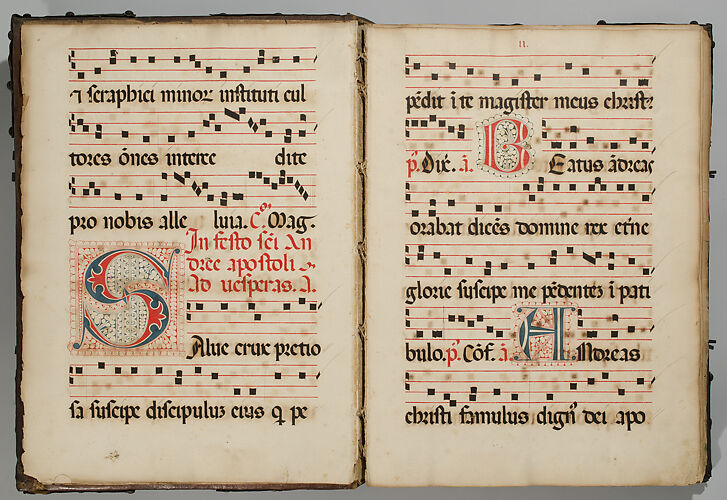 ⁊ seraphici minor instituti cul
tores ōnes interce dite
pro nobis alle luia. Cō. Mag.
In festo sc̄i An
dree apostoli
Ad vesperas. A.
Salve crux pretio
sa suscipe discipulū eius q̄ pe
II.
pēdit ī te magister meus christꝰ
p̄. Dix̄. ā. Beatus ādreas
orabat dicēs domine rex etīne
glorie suscipe me pēdentēz ī pati
bulo. p̄. Cōf. ā. Andreas
christi famulus dignꝰ dei apo